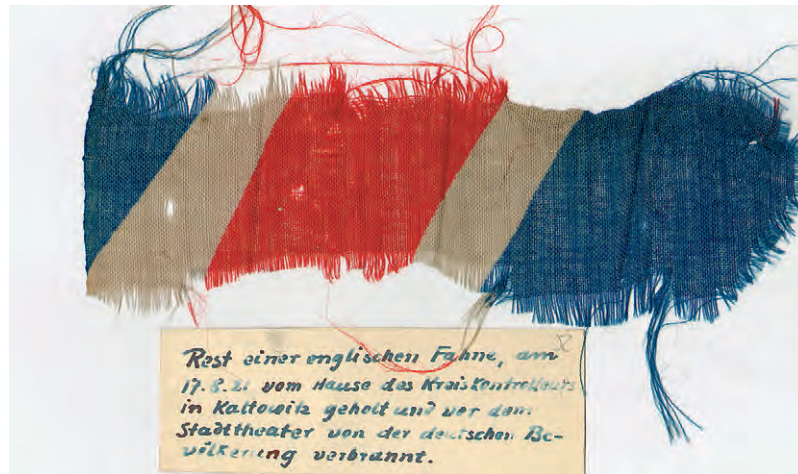 52
Rest einer englischen Fahne, am
17.8.21 vom Hause des Kreiskontrolleurs
in Kattowitz geholt und vor dem
Stadttheater von der deutschen Be-
völkerung verbrannt.